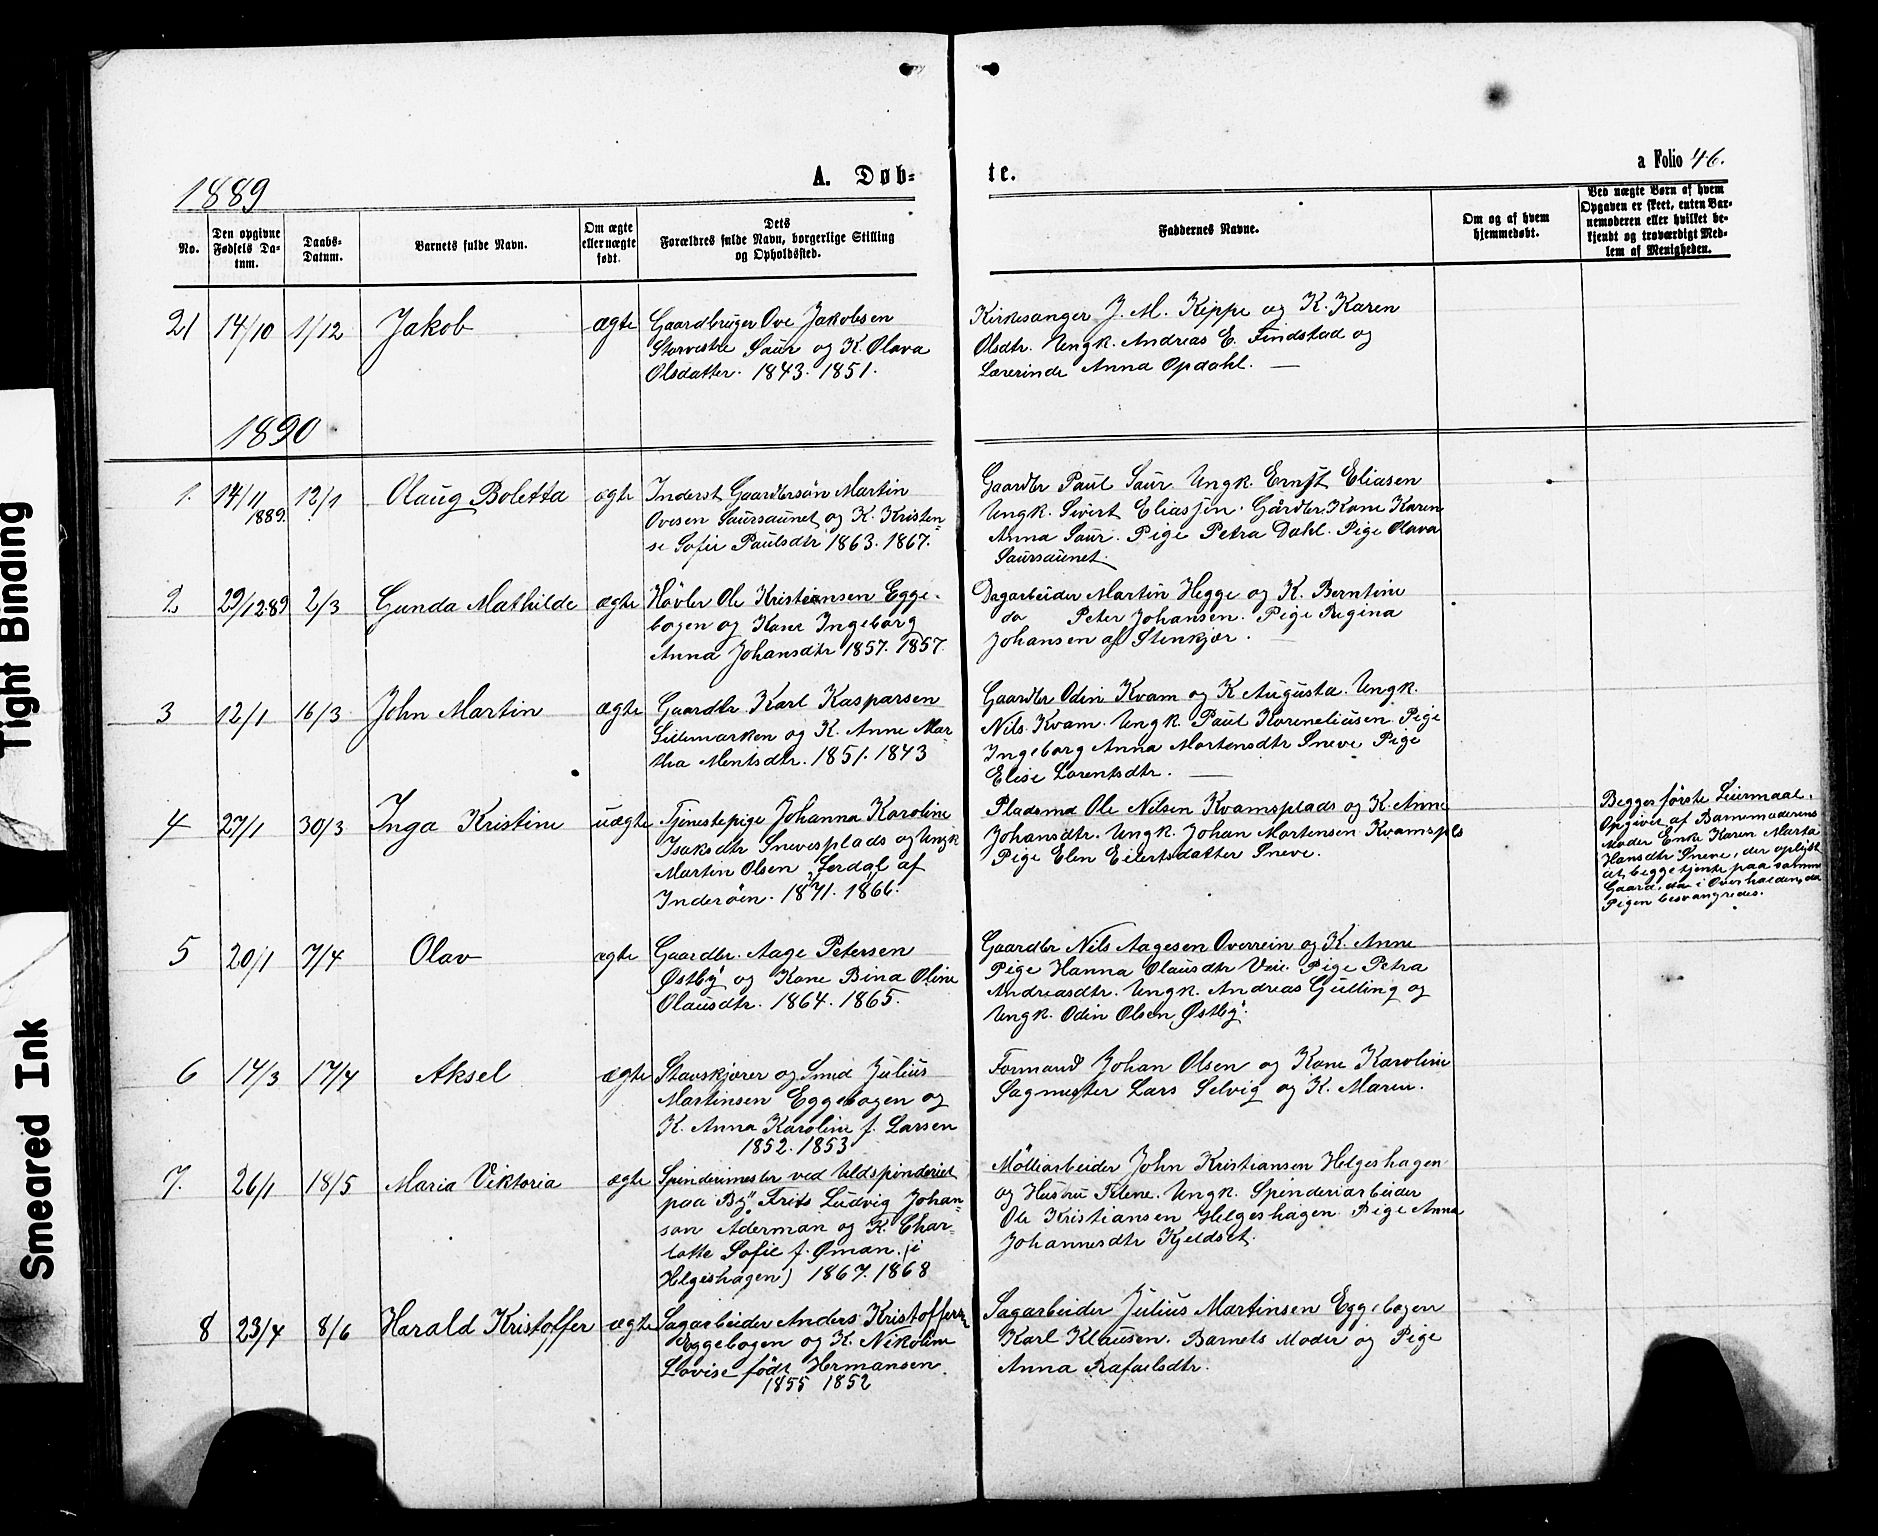 1889
A. Døb-
te.
a Folio 46.
No.
Den opgivne
Fødsels Da-
tum.
Daabs-
Datum.
Barnets fulde Navn.
Om ægte
eller uægte
født.
Dets
Forældres fulde Navn, borgerlige Stilling
og Opholdssted.
Faddernes Navne.
Om og af hvem
hjemmedøbt.
Ved uægte Børn af hvem
Opgaven er skeet, enten Bar-
nemoderen eller hvilket be-
kjendt og troværdigt Med-
lem af Menigheden.
21 14/10 1/12 Jakob ægte
Gaardbruger Ove Jakobsen
Storvestre Saur og K. Olava
Olsdatter. 1843. 1851.
Kirkesanger J. M. Kippe og K. Karen
Olsdtr. Ungk. Andreas E. Findstad og
Lærerinde Anna Opdahl. —
1890
1. 14/11 1889. 12/1 Olaug Boletta ægte
Inderst Gaardbrsøn Martin
Ovesen Saursaunet og K. Kristen-
se Sofie Paulsdtr 1863. 1867.
Gaardbr Paul Saur Ungk. Ernst Eliasen
Ungk. Sivert Eliassen. Gårdbr. Kone Karen
Anna Saur. Pige Petra Dahl. Pige Olava
Saursaunet.
2 29/12.89 2/3 Gunda Mathilde ægte
Høvler Ole Kristiansen Egge-
bogen og Kone Ingeborg
Anna Johansdtr 1857. 1857.
Dagarbeider Martin Hegge og K. Berntine
do Peter Johansen. Pige Regina
Johansen af Stenkjær. —
3 12/1 16/3 John Martin ægte
Gaardbr. Karl Kasparsen
Lillemarken og K. Anne Mar-
tha Mentsdtr. 1851. 1843
Gaardbr Odin Kvam og K Augusta. Ungk.
Nils Kvam. Ungk. Paul Korneliusen Pige
Ingeborg Anna Mortensdtr Sneve Pige
Elise Lorentsdtr. —
4 27/1 30/3 Inga Kristine uægte
Tjenestepige Johanna Karoline
Isaksdtr Snevesplads og Ungk
Martin Olsen Lerdal af
Inderøen. 1871. 1866.
Pladsmd Ole Nilsen Kvamsplads og K. Anne
Johansdtr. Ungk. Johan Mortensen Kvamspls
Pige Elen Eilertsdatter Sneve.
Begges første Leiermaal.
Opgiver af Barnemoderens
Moder Enke Karen Marta
Hansdtr Sneve, der oplyst
at begge tjente paa samme
Gaard, da i Overhalden, da
Pigen besvangredes.
5 20/1 7/4 Olav ægte
Gaardbr. Aage Petersen
Østby og Kone Bina Oline
Olausdtr. 1864. 1865.
Gaardbr Nils Aagesen Overrein og K. Anne
Pige Hanna Olausdtr Pige Petra
Andreasdtr. Ungk. Andreas Gulling og
Ungk. Odin Olsen Østby.
6 14/3 17/4 Aksel ægte
Stavskjærer og Smed Julius
Martinsen Eggebogen og
K. Anna Karoline f. Larsen
1852. 1853
Formand Johan Olsen og Kone Karoline
Sagmester Lars Selvig og K. Maren.
7. 26/1 18/5 Maria Viktoria ægte
Spinderimester ved Uldspinderiet
paa By" Frits Ludvig Johan-
son Aderman og K. Char-
lotte Sofie f. Öman. (i
Helgeshagen) 1867. 1868
Møllearbeider John Kristiansen Helgeshagen
og Hustru Ungk. Spinderiarbeider
Ole Kristiansen Helgeshagen. Pige Anna
Johannesdtr Kjeldset.
8 23/4 8/6 Harald Kristoffer ægte
Sagarbeider Anders Kristoffersen
Eggebogen og K. Nikoline
Lovise født Hermansen.
1855 1852
Sagarbeider Julius Martinsen Eggebogen
Karl Klausen. Barnets Moder og Pige
Anna Rafaelsdtr.
Tight Binding
Smeared Ink